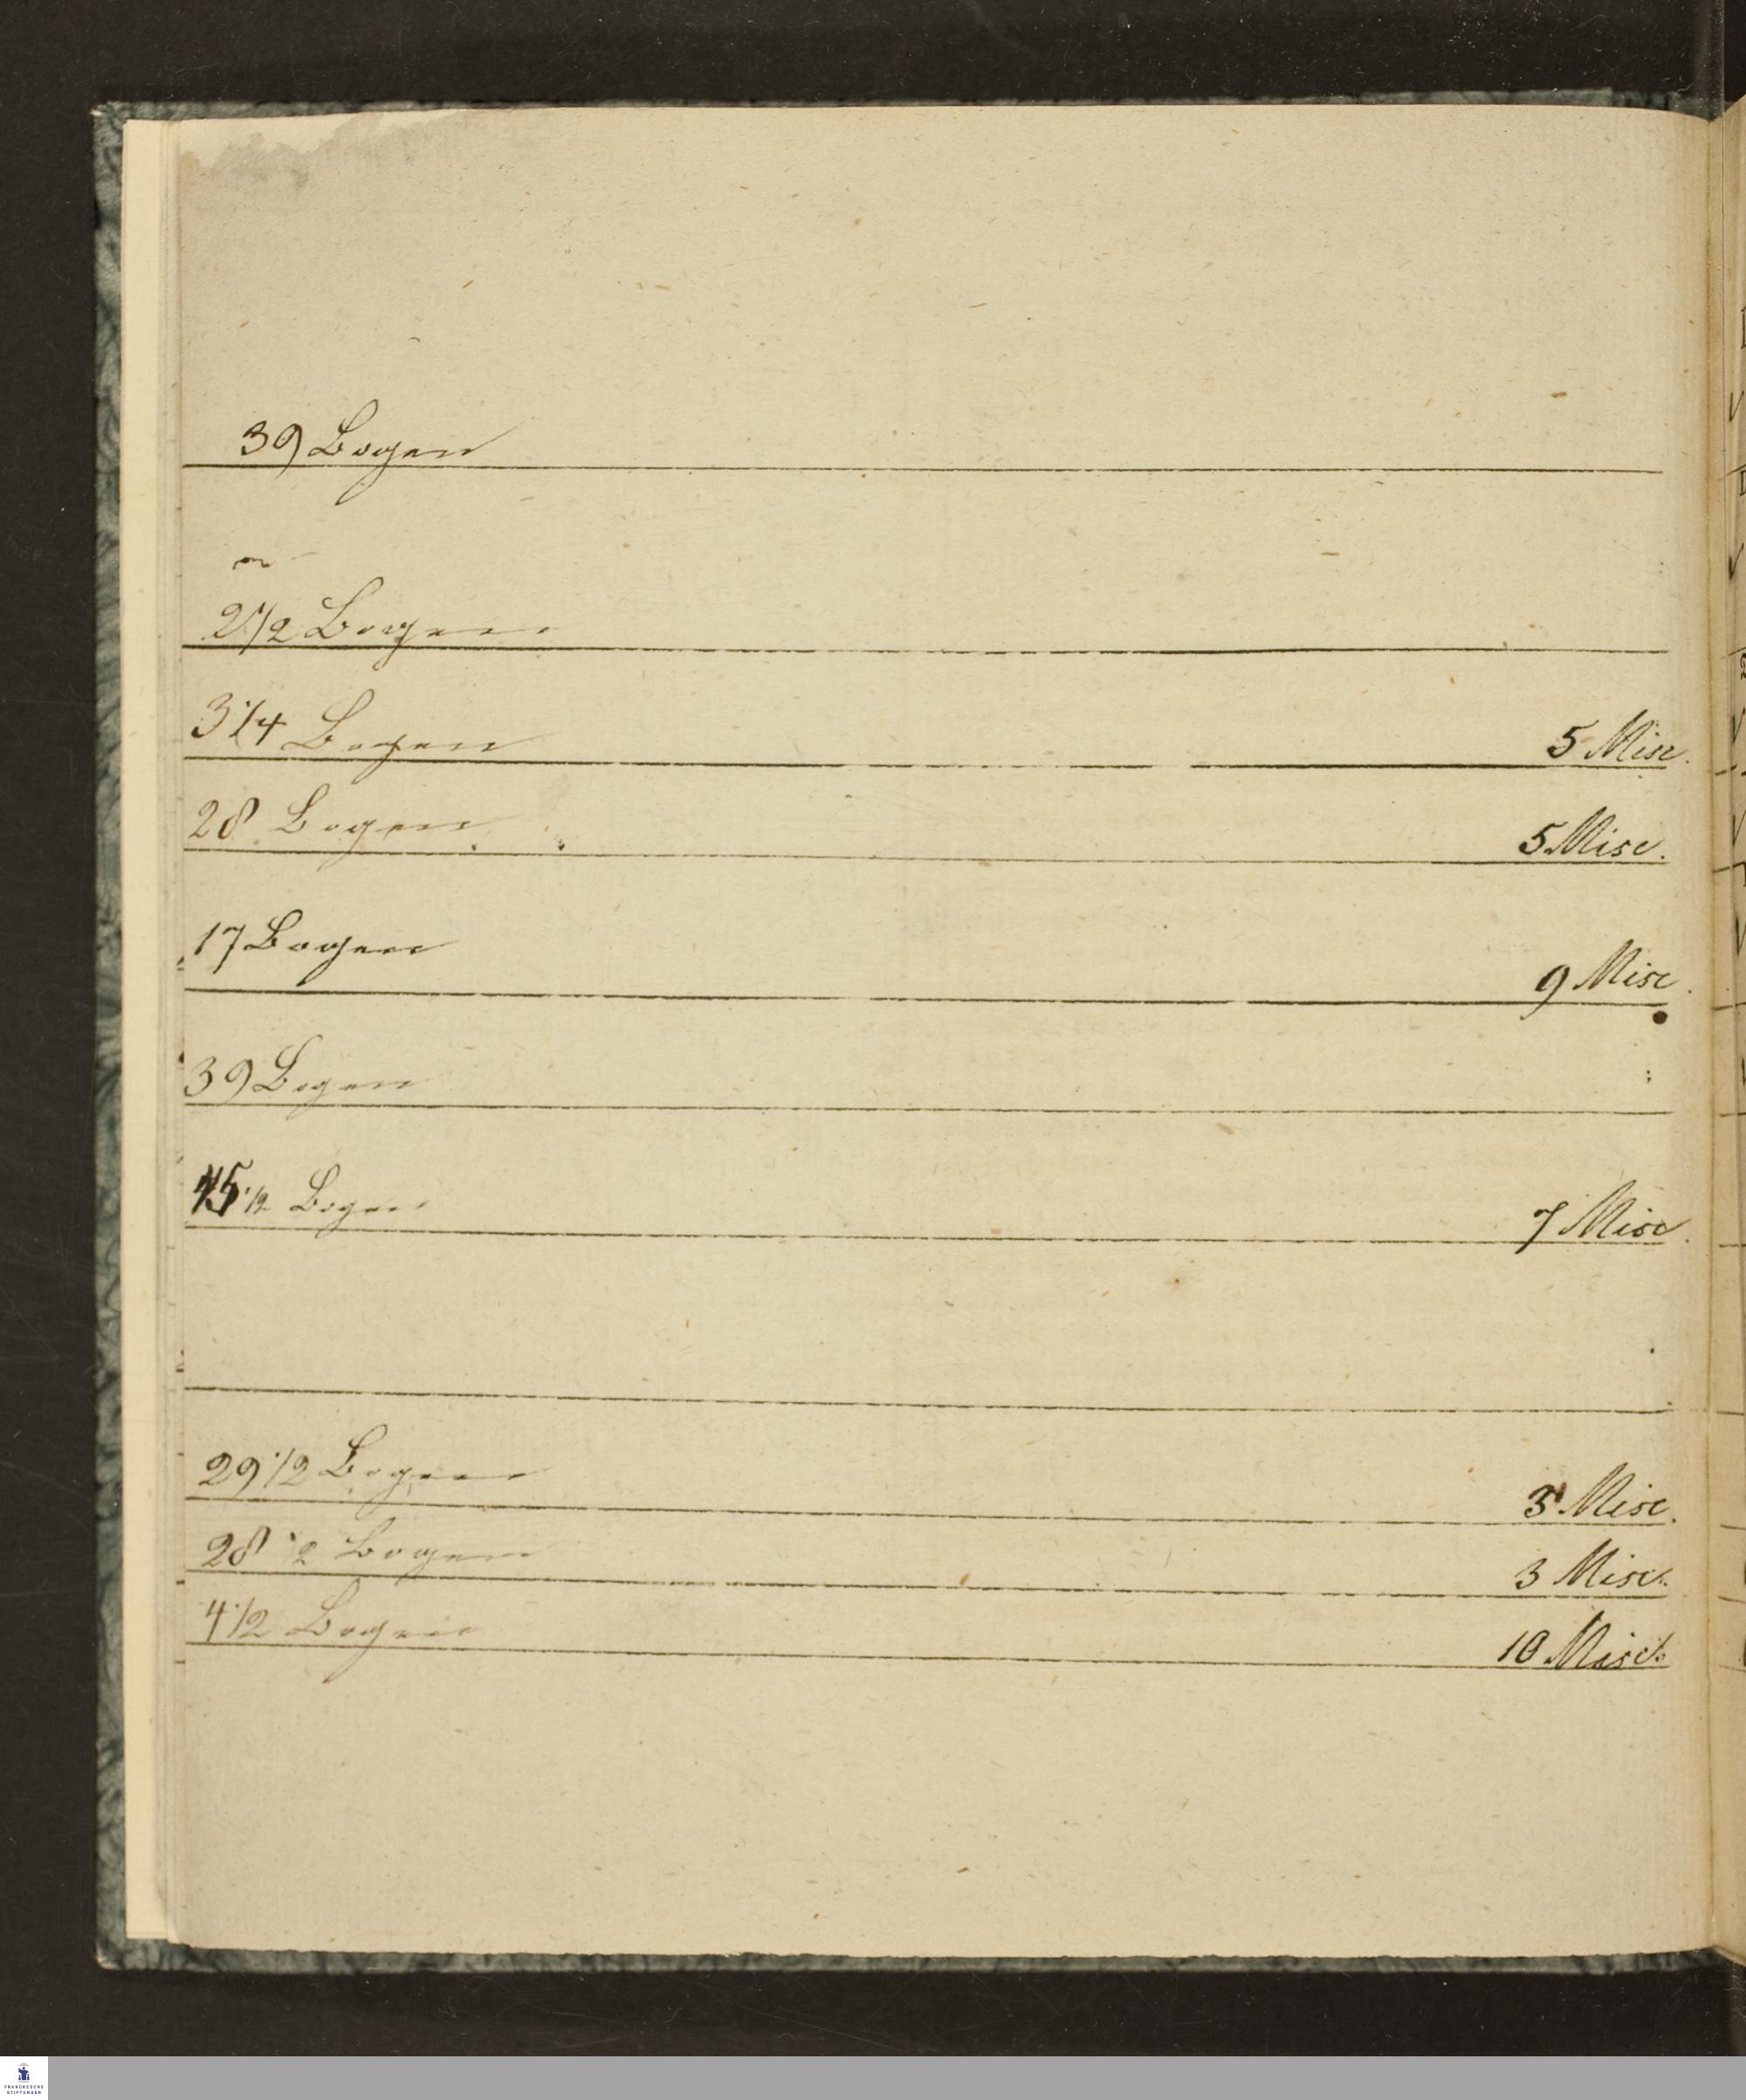 39 Bogen
2 1/2 Bogen
3 1/4 Bogen 5 Misc.
28 Bogen 5 Misc.
17 Bogen 9 Misc.
39 Bogen
45 1/2 Bogen 7 Misc.
29 1/2 Bogen 3 Misc.
28 1/2 Bogen 3 Misc.
4 1/2 Bogen 10 Misc.
FRANCKESCHE
STIFTUNGEN